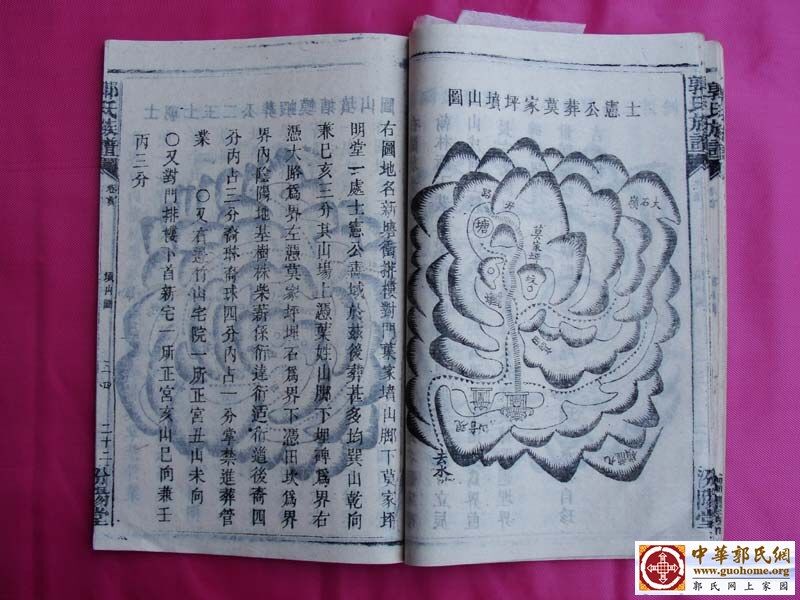 士憲公葬莫家坪墳山圖
大石嶺
塘
莫家坪
右圖地名新墻衝排樓對門葉家墻山脚下莫家坪
明堂一處士憲公斋域於兹後葬甚多均巽山乾向
兼巳亥三分其山塲上憑葉姓山脚下埋碑爲界右
憑大路爲界左憑莫家坪埋石爲界下憑田坎爲界
界內陰陽地基樹株柴薪係衍達衍适衍道後裔四
分內占三分裔琳裔珠四分內占一分掌禁進葬管
業 〇又右邊竹山宅院一所正宮丑山未向
〇又對門排樓下首新宅一所正宮亥山巳向兼壬
丙三分
郭氏族譜
卷首
墳山圖
二十二
汾陽堂
郭氏族譜
汾陽堂
中華郭氏網
www.guohome.org
郭氏网上家园